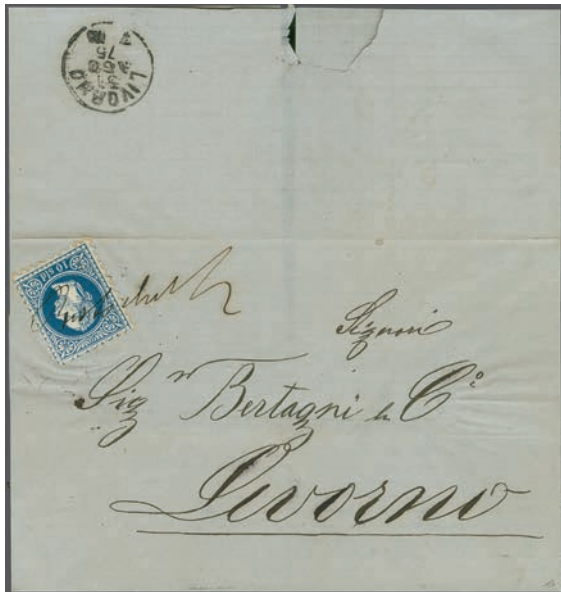 LIVORNO
75
10 SLD
Signori
Sig.ri Bertagni & Co
Livorno